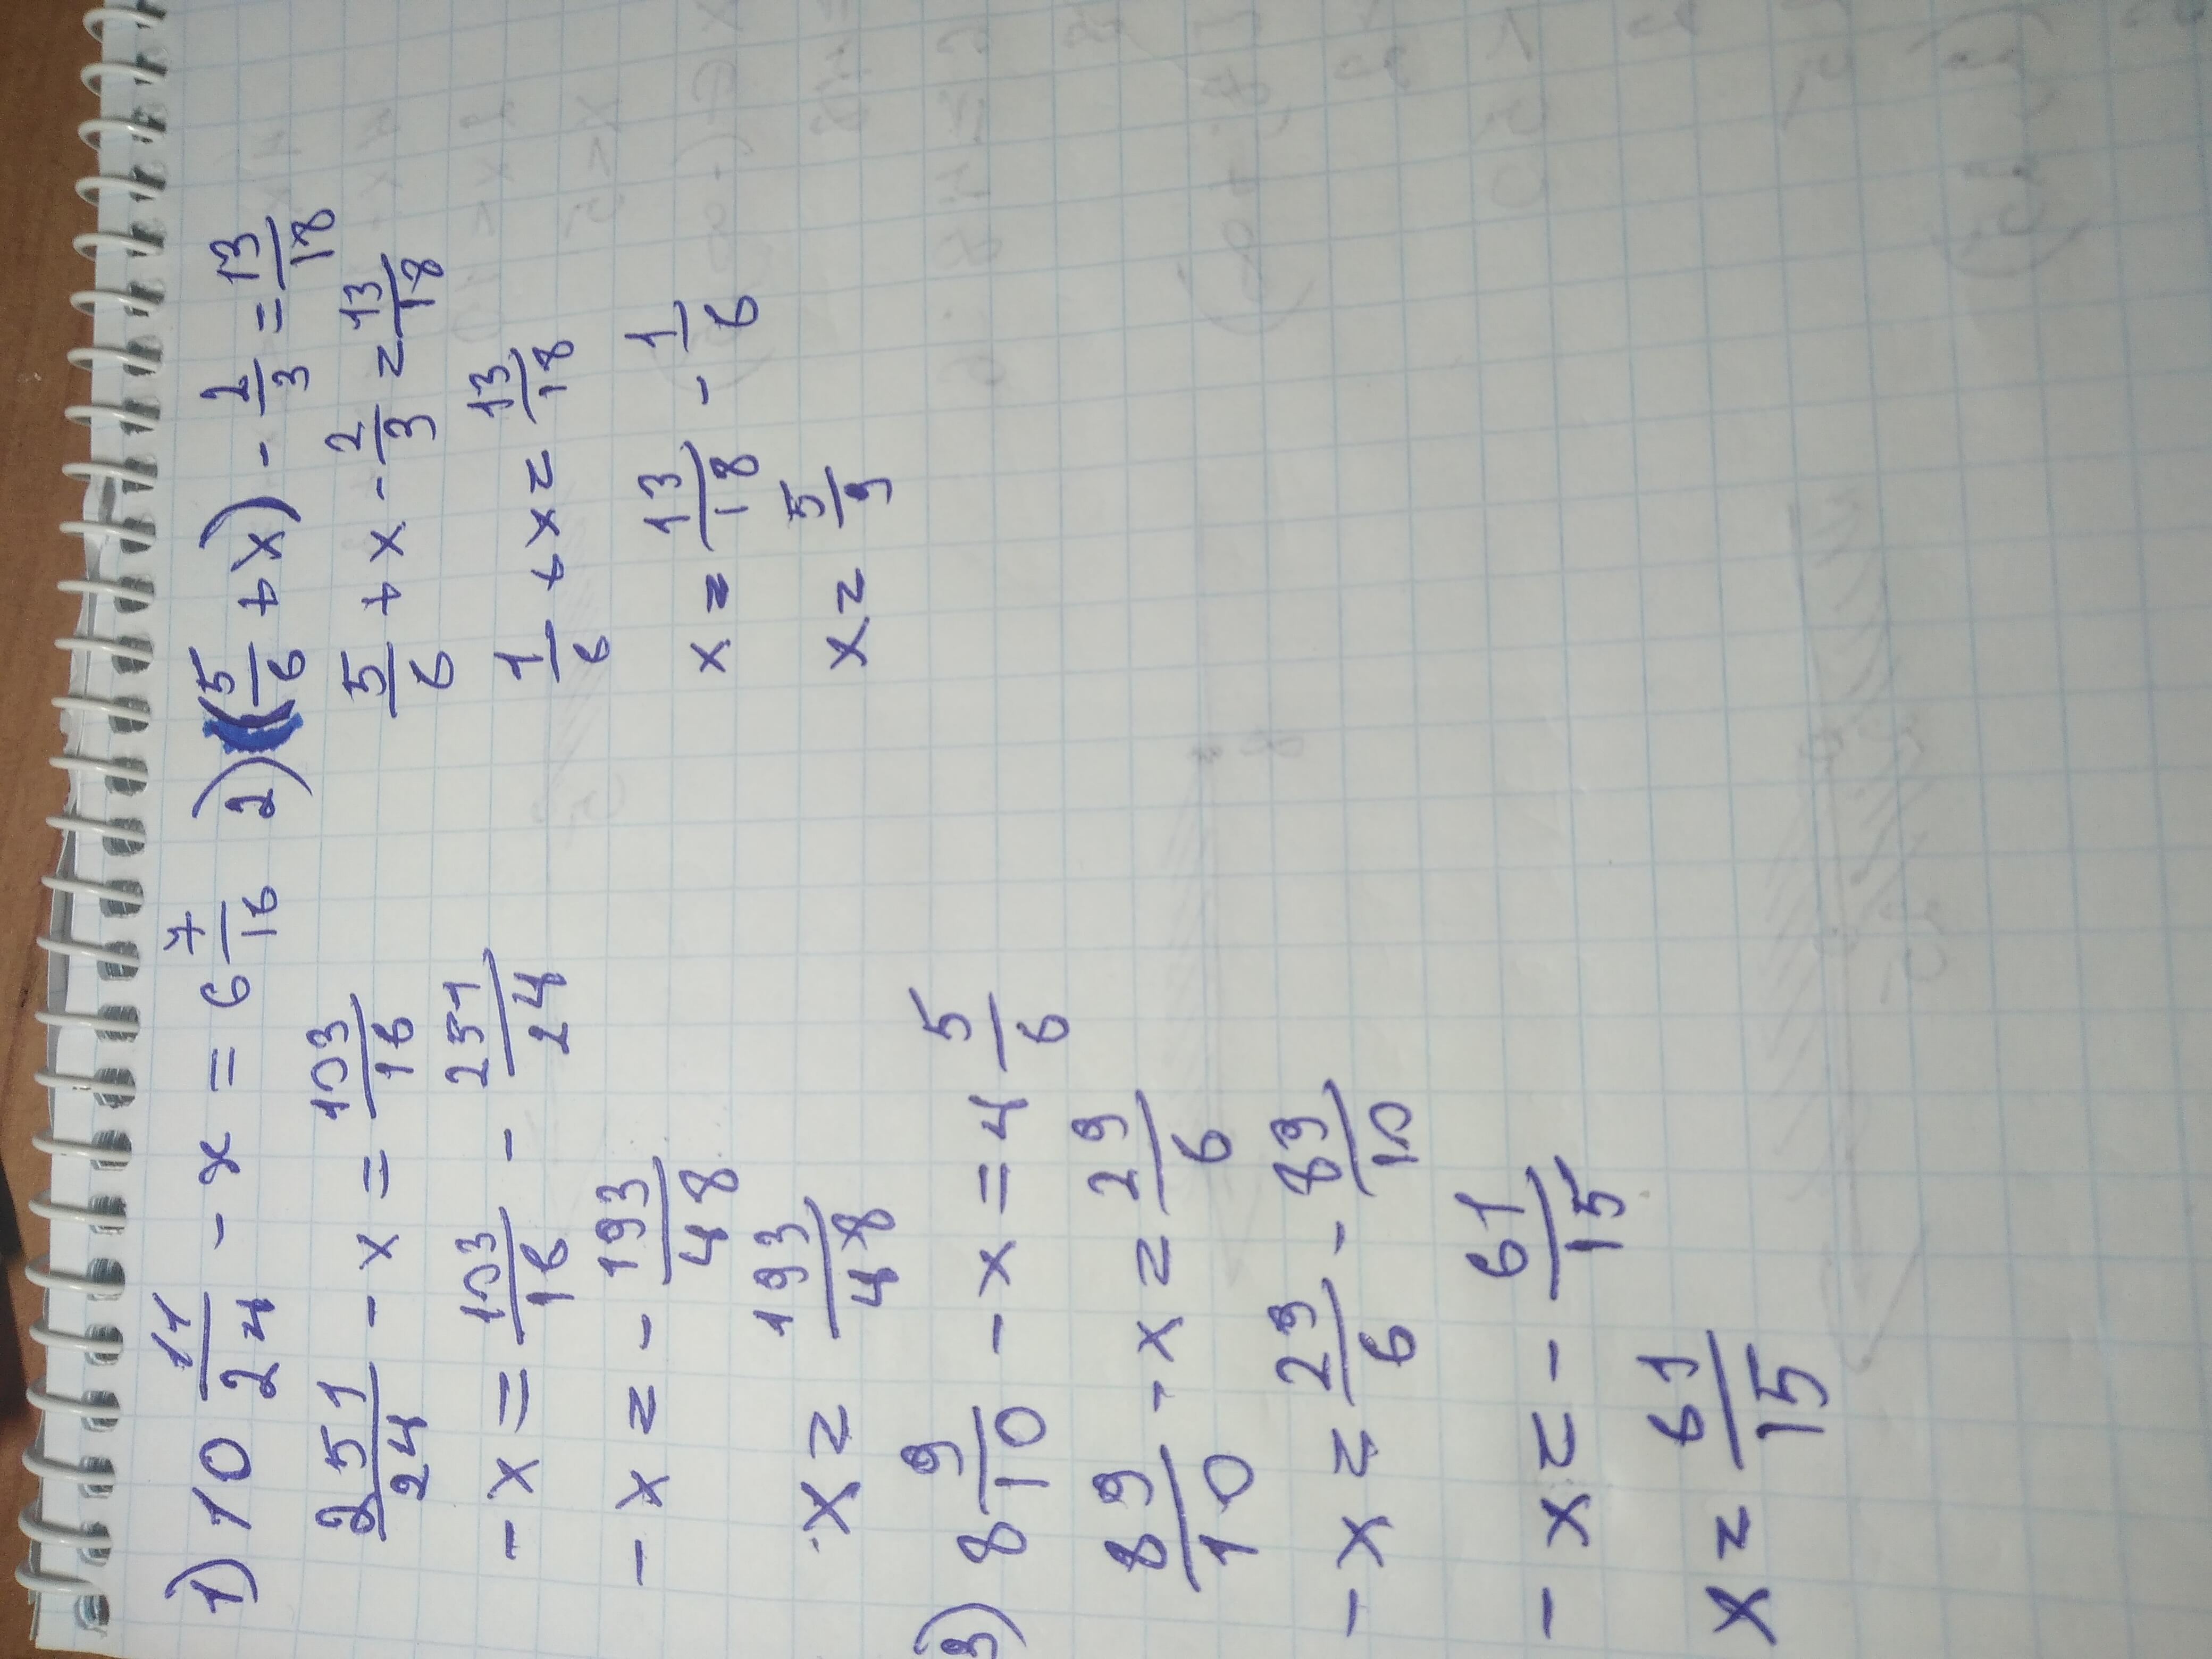 1) 10 11/24 - x = 6 7/16
251/24 - x = 103/16
-x = 103/16 - 251/24
-x = - 193/48
x = 193/48
2) (5/6 + x) - 2/3 = 13/18
5/6 + x - 2/3 = 13/18
1/6 + x = 13/18
x = 13/18 - 1/6
x = 5/9
3) 8 9/10 - x = 4 5/6
89/10 - x = 29/6
-x = 29/6 - 89/10
-x = - 61/15
x = 61/15